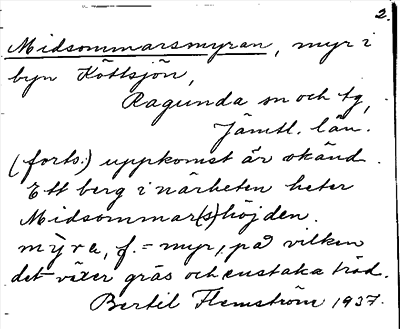 2.
Midsommarsmyran, myr i
byn Köttsjön,
Ragunda sn och tg,
Jämtl. län.
(forts.) uppkomst är okänd.
Ett berg i närheten heter
Midsommar(s)höjden.
mýra, f. = myr, på vilken
det växer gräs och enstaka träd.
Bertil Flemström 1937.